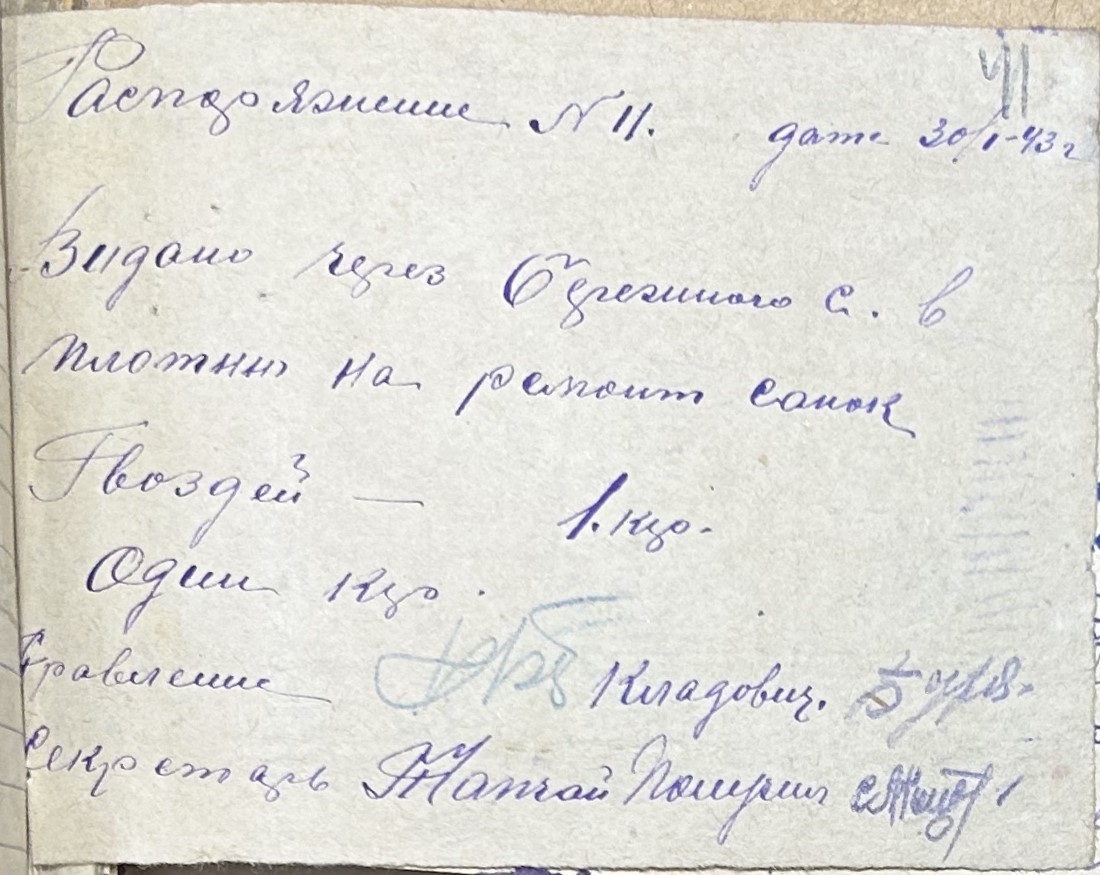 VII
Распоряжение № 11. дата 30/I-43 г
Видано через Бережного С. в
плотню на ремонт санок
Гвоздей — 1. кгр.
Один кгр.
Правление Кладовщ.
Секретарь Получил